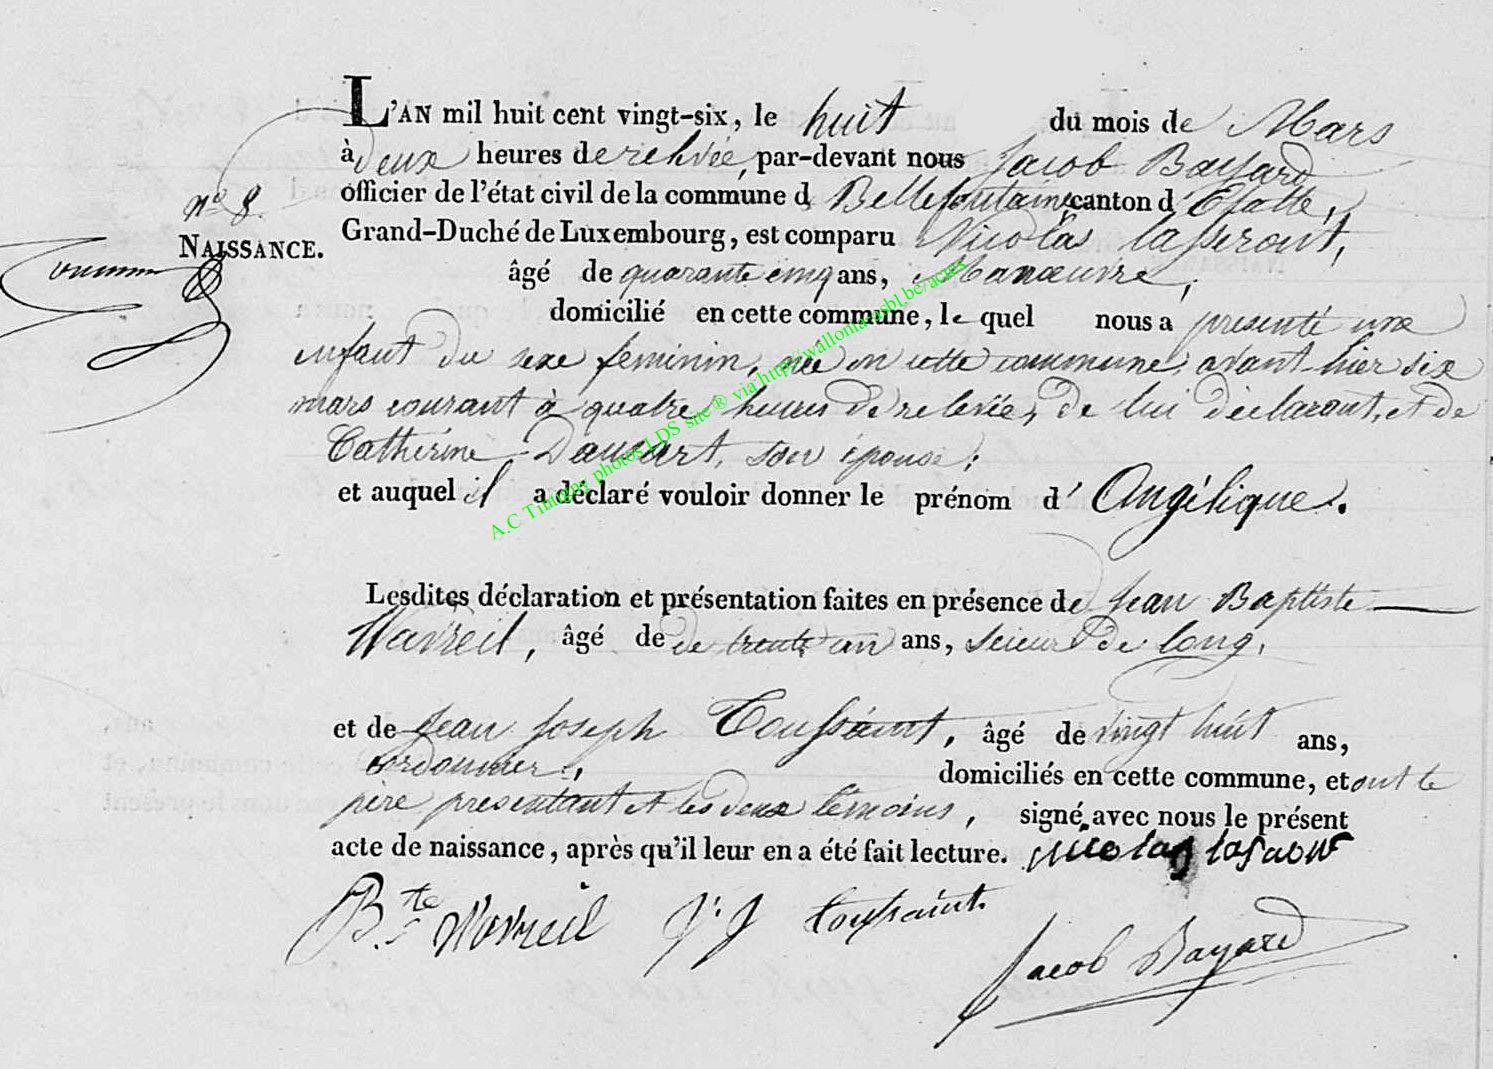 L'AN mil huit cent vingt-six, le huit du mois de Mars
à deux heures de relevée, par-devant nous Jacob Bayard
officier de l'état civil de la commune d Bellefontaine canton d' Etalle,
n° 8.
NAISSANCE.
Grand-Duché de Luxembourg, est comparu Nicolas
âgé de quarante cinq ans, Manœuvre,
domicilié en cette commune, le quel nous a presenté une
enfant du sexe feminin, née en cette commune, avant-hier six
mars courant à quatre heures de relevée, de lui déclarant, et de
Catherine son épouse;
et auquel il a déclaré vouloir donner le prénom d' Angélique.
A.C Tintigny photos LDS site ® via http://wallonia-asbl.be/actes
Lesdites déclaration et présentation faites en présence de Jean Baptiste
Mavreil, âgé de de trente un ans, scieur de long,
et de Jean Joseph Toussaint, âgé de vingt huit ans,
cordonnier, domiciliés en cette commune, et ont le
père présentant et les deux témoins, signé avec nous le présent
acte de naissance, après qu'il leur en a été fait lecture. nicolas
B.te Mavreil J. J toussaint.
Jacob Bayard